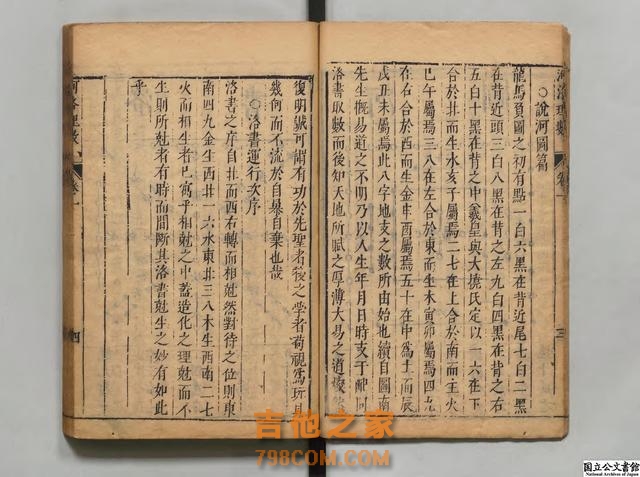 ○說河圖篇
龍馬負圖之初有點一白六黑在背近尾七白二黑
在背近頭三白八黑在背之左九白四黑在背之右
五白十黑在背之中羲皇與大撓氏定以一六在下
合於北而生水亥子屬焉二七在上合於南而生火
巳午屬焉三八在左合於東而生木寅卯屬焉四九
在右合於西而生金申酉屬焉五十在中為土而辰
戌丑未屬焉此八字地支之數所由始也續自圖南
先生慨易道之不明乃以人生年月日時支干配河
洛書取數而後知天地所賦之厚薄大易之道燦
復明誠可謂有功於先聖者後之學者苟視為玩具
幾何而不流於自暴自棄也哉
○洛書運行次序
洛書之序自北而西右轉而相尅然對待之位則東
南四九金生西北一六水東北三八木生西南二七
火而相生者已寓乎相尅之中蓋造化之理尅而不
生則所尅者有時而間斷其洛書尅生之妙有如此
乎
河洛理數
卷一
三
四
吉他之家
798COM.COM
国立公文書館
National Archives of Japan